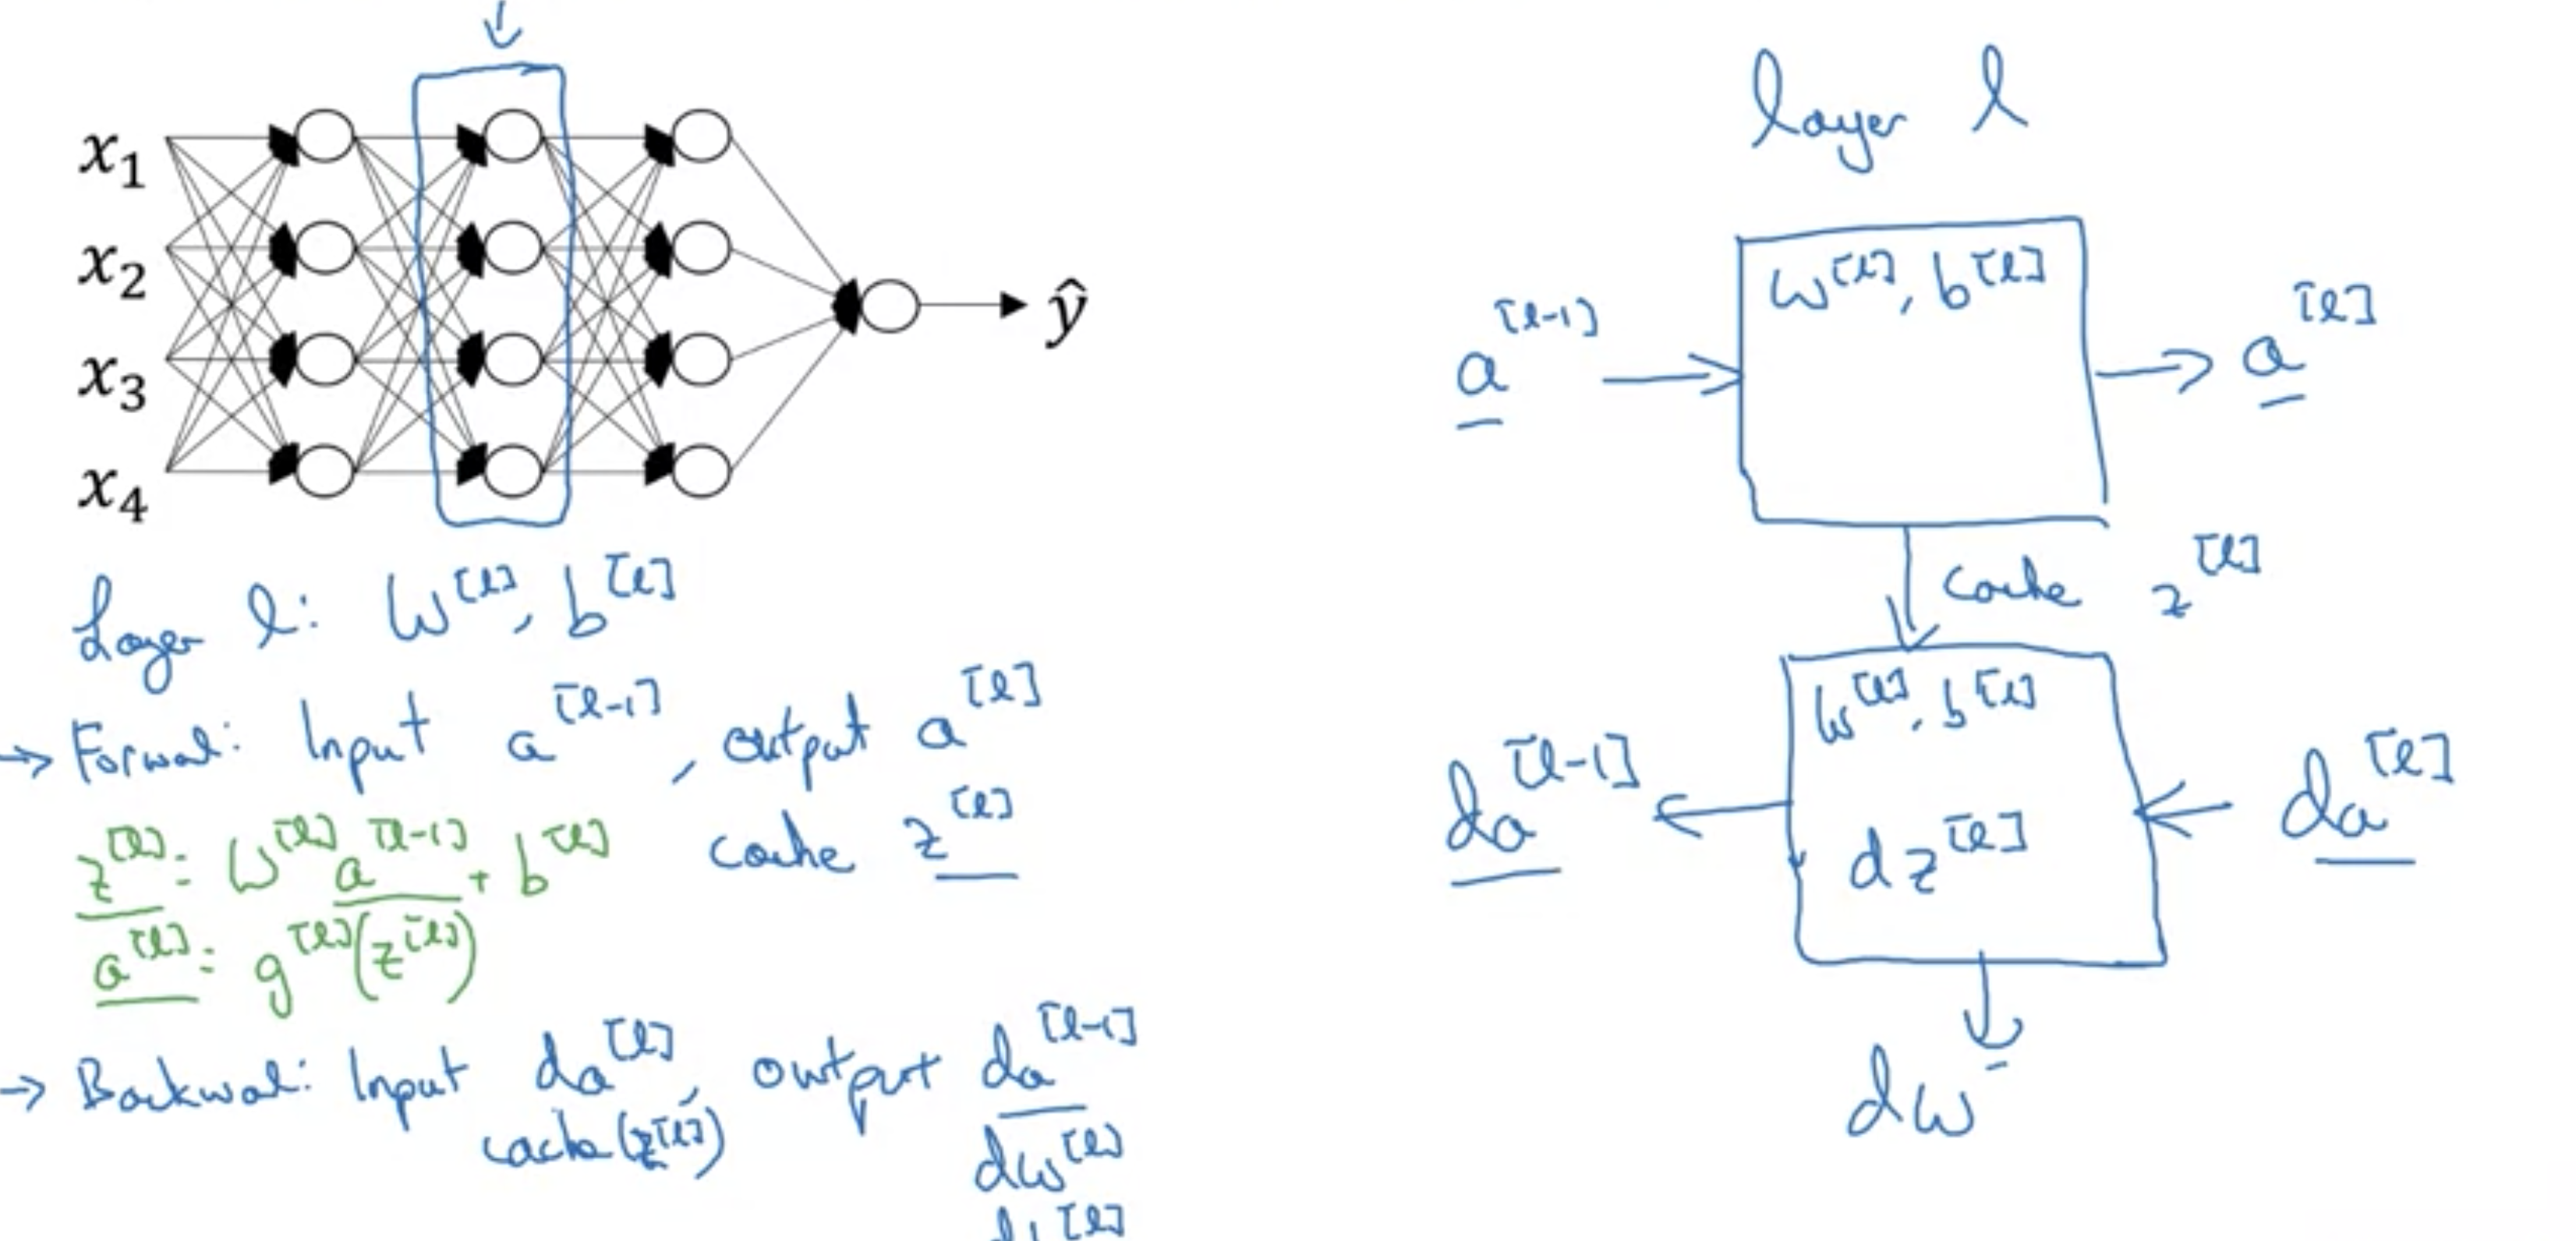 x₁
x₂
x₃
x₄
ŷ
Layer l: W^[l], b^[l]
→ Forward: Input a^[l-1], output a^[l]
z^[l] = W^[l] a^[l-1] + b^[l]
cache z^[l]
a^[l] = g^[l](z^[l])
→ Backward: Input da^[l], output da^[l-1]
cache (z^[l])
dW^[l]
layer l
W^[l], b^[l]
a^[l-1] → → a^[l]
cache z^[l]
W^[l], b^[l]
da^[l-1] ← ← da^[l]
dz^[l]
dW